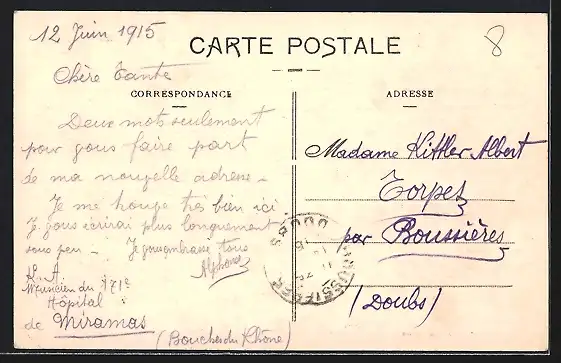 12 Juin 1915
CARTE POSTALE
8
Chère Tante
CORRESPONDANCE
ADRESSE
Deux mots seulement
pour vous faire part
de ma nouvelle adresse -
Je me trouve très bien ici
Je vous écrirai plus longuement
sous peu - Je vous embrasse tous
Alphonse
Musicien du 171e
Hôpital
de Miramas
(Bouches du Rhône)
Madame Kittler Albert
Torpes
par Boussières
(Doubs)